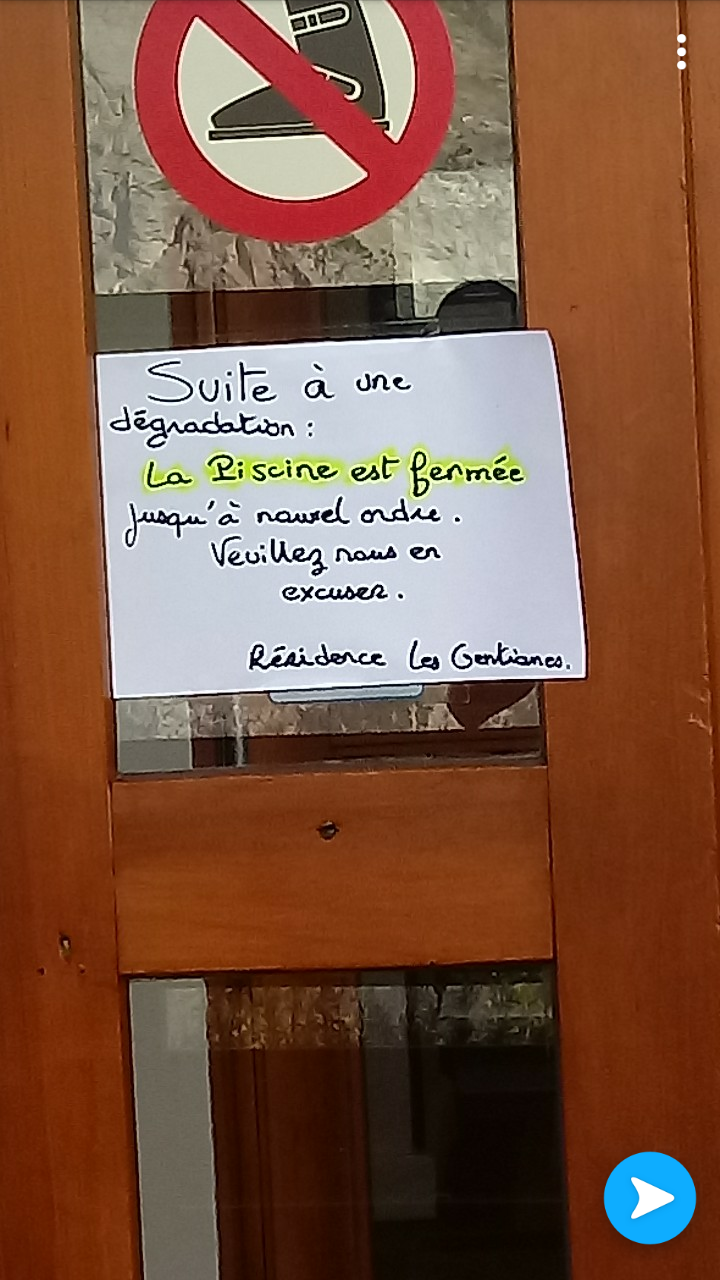 Suite à une
dégradation :
La Piscine est fermée
jusqu'à nouvel ordre.
Veuillez nous en
excuser.
Résidence Les Gentianes.